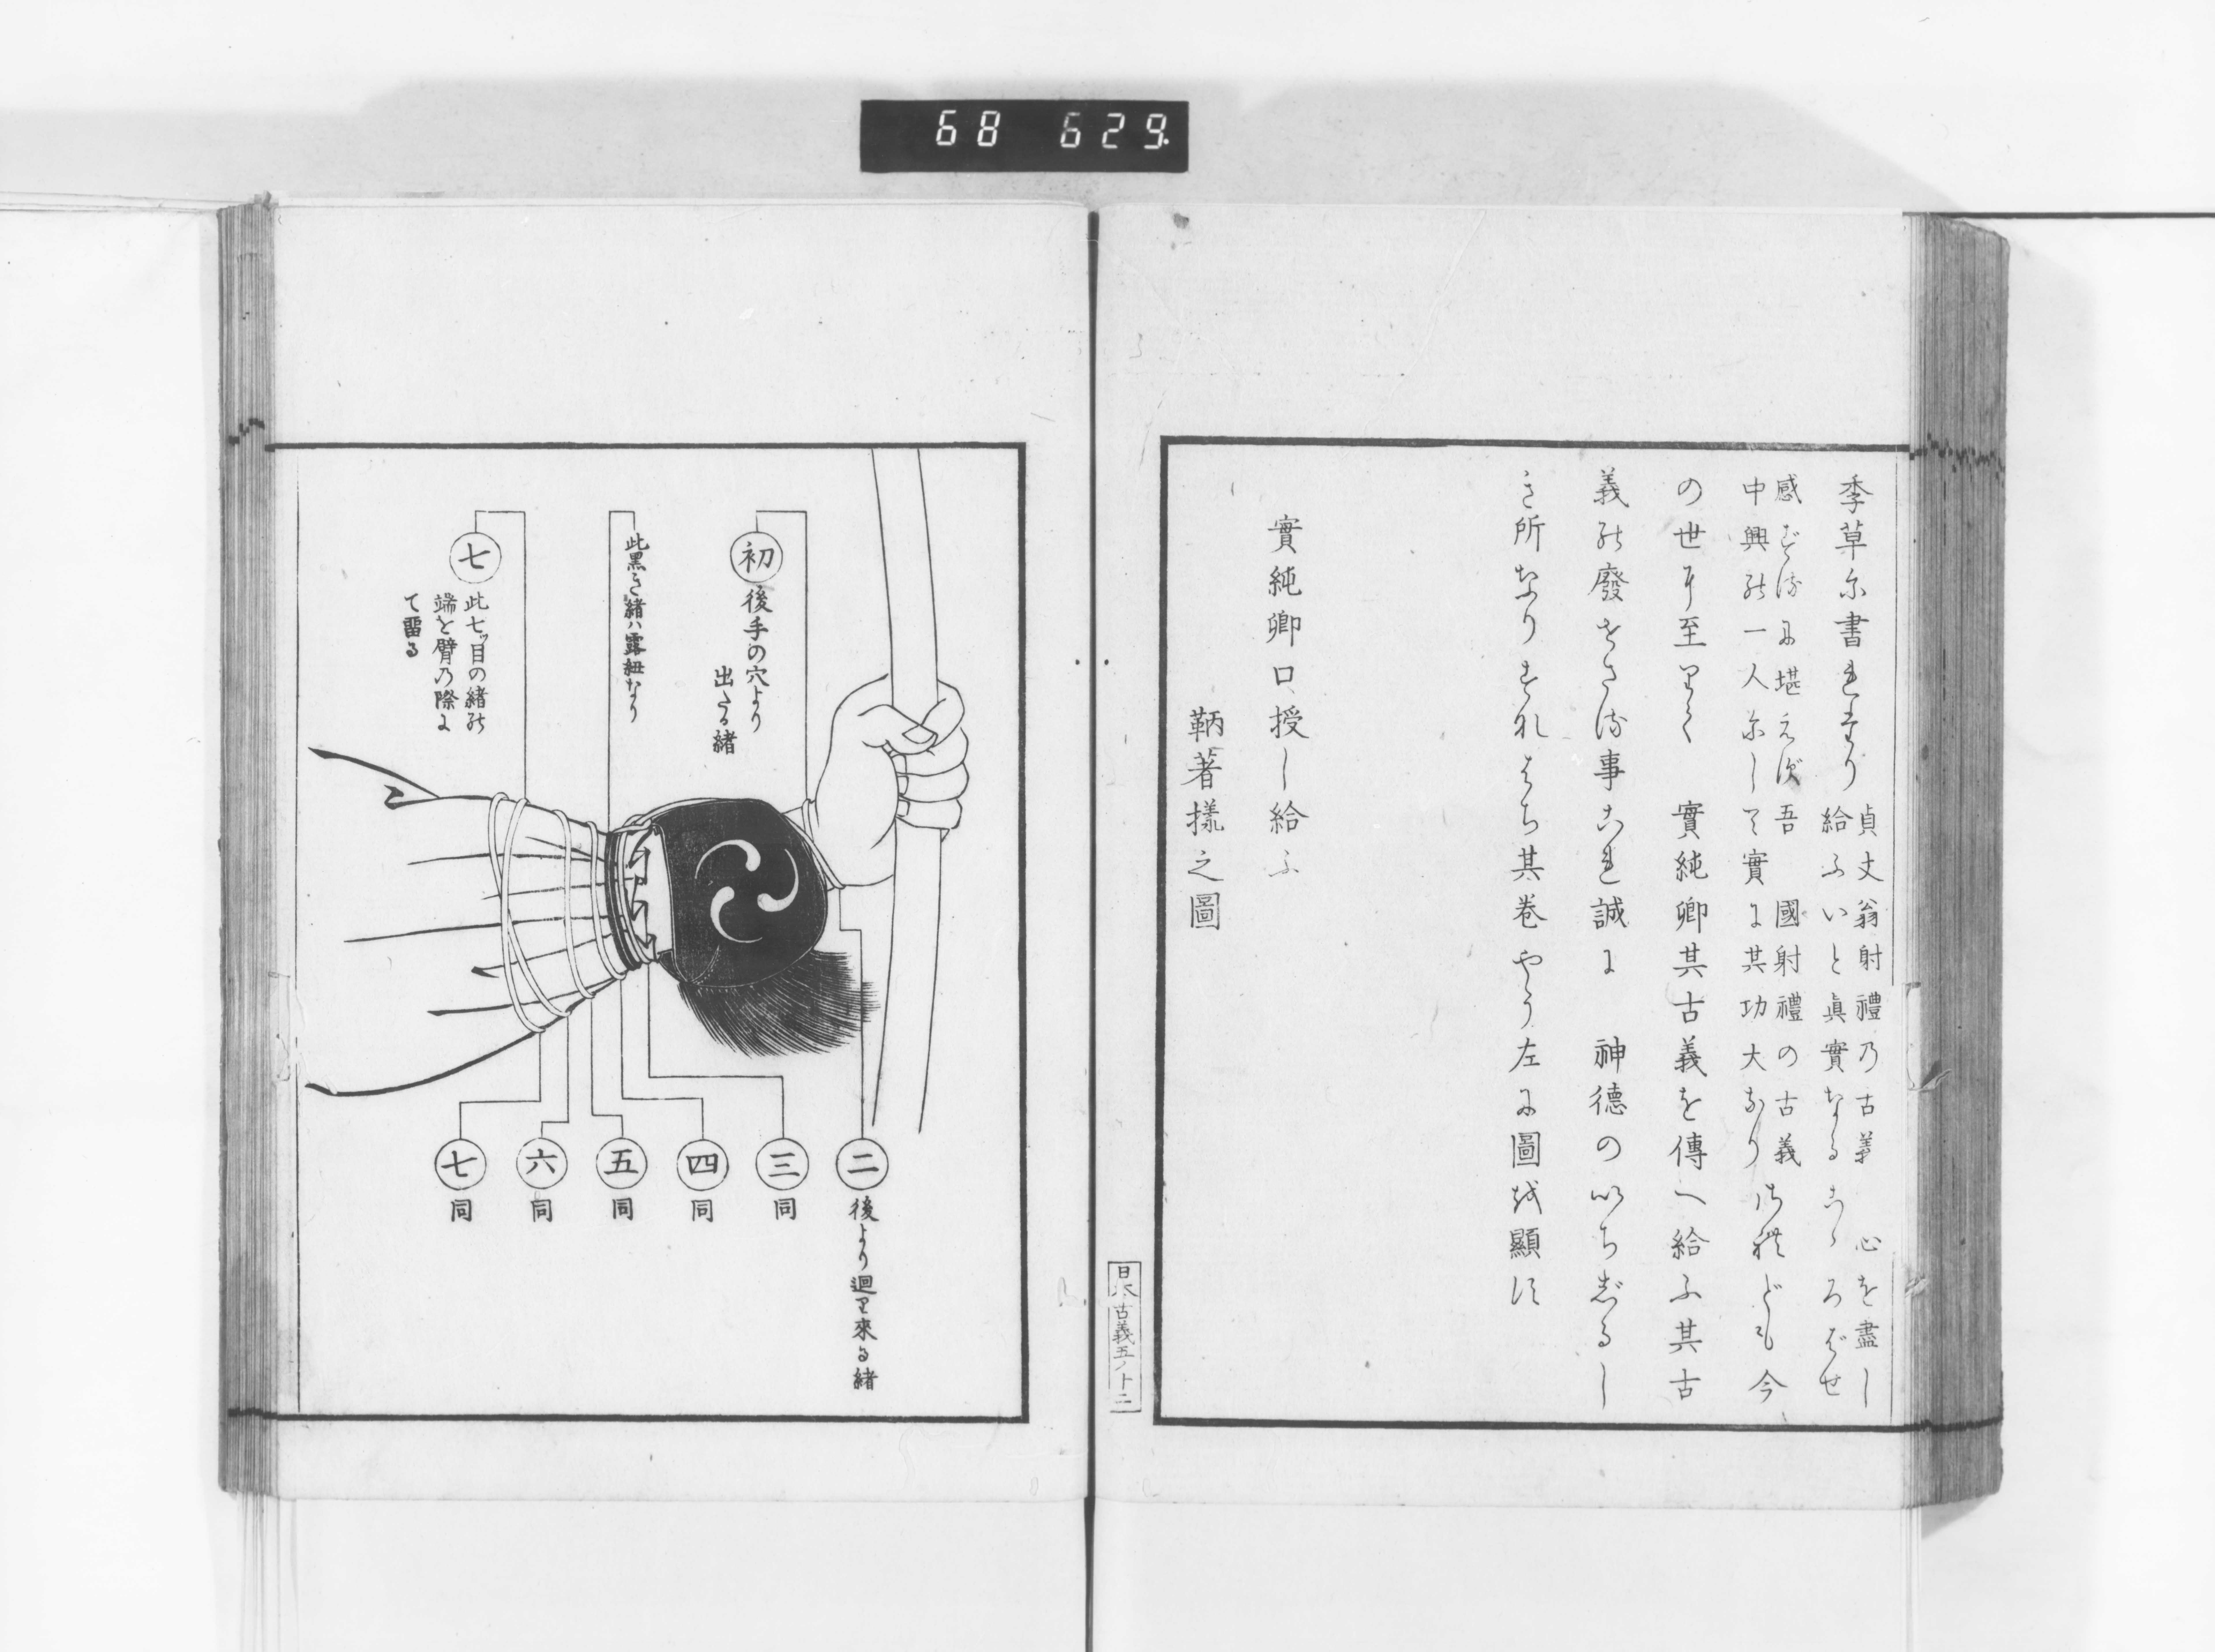 68 629.
季草尓書れたり
貞丈翁射禮乃古義 心を盡し
給ふいと眞實なるこゝろばせ
感ずるに堪えず吾 國射禮の古義
中興の一人にして實に其功大なり
されども今
の世に至りて 實純卿其古義を傳へ給ふ其古
義の廢せざる事これ誠に 神德のいちじるし
き所なりすなはち其卷やう左に圖を顯す
實純卿口授し給ふ
鞆著樣之圖
日本古義五ノ十二
初 後手の穴より
出たる緒
此黒き緒ハ露紐なり
七 此七ッ目の緒の
端を臂乃際に
て留る
二 後より廻り來る緒
三 同
四 同
五 同
六 同
七 同